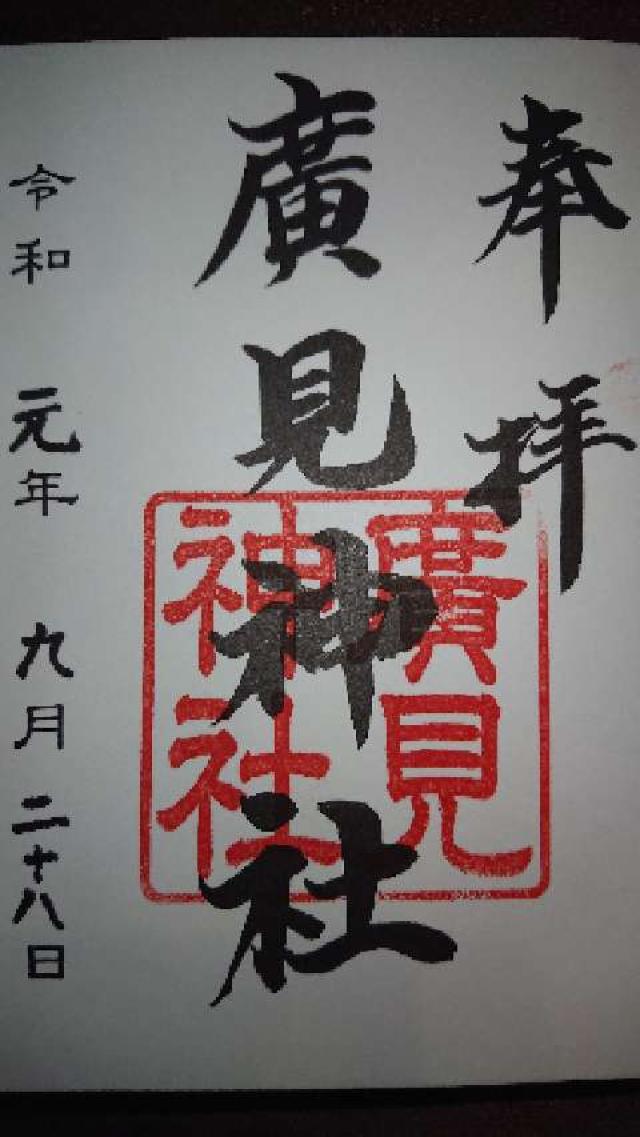 奉拝
廣見神社
廣見
神社
令和元年九月二十八日